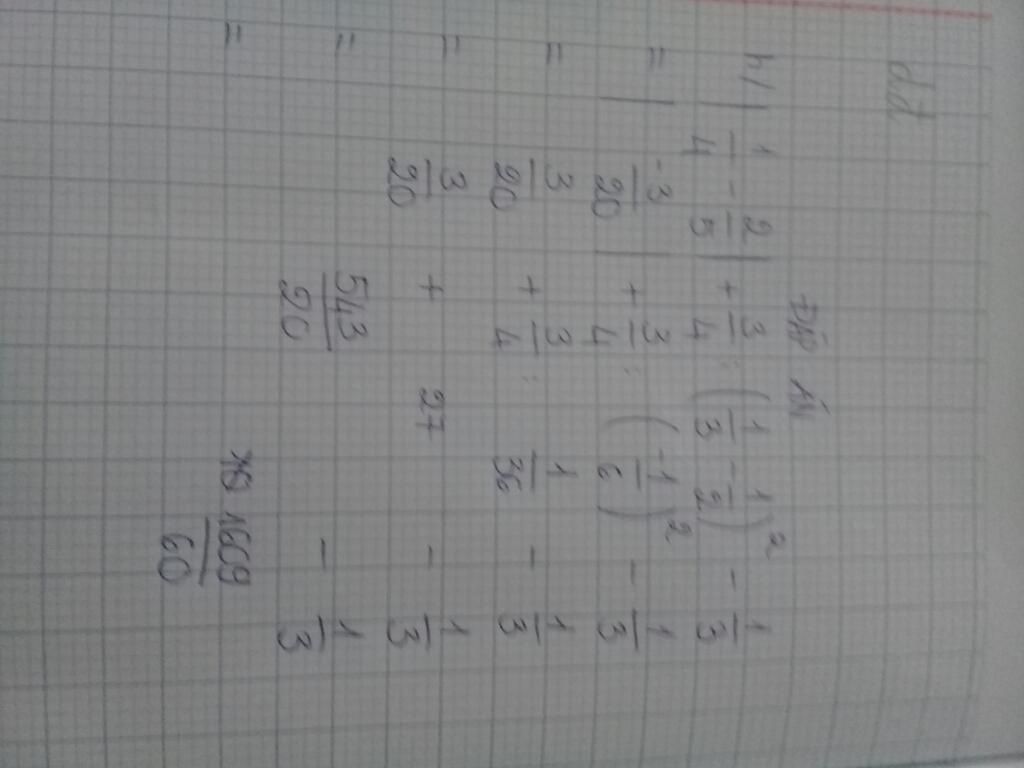 ĐÁP ÁN
h/ | 1/4 - 2/5 | + 3/4 : ( 1/3 - 1/2 )² - 1/3
= | -3/20 | + 3/4 : ( -1/6 )² - 1/3
= 3/20 + 3/4 : 1/36 - 1/3
= 3/20 + 27 - 1/3
= 543/20 - 1/3
= 1609/60